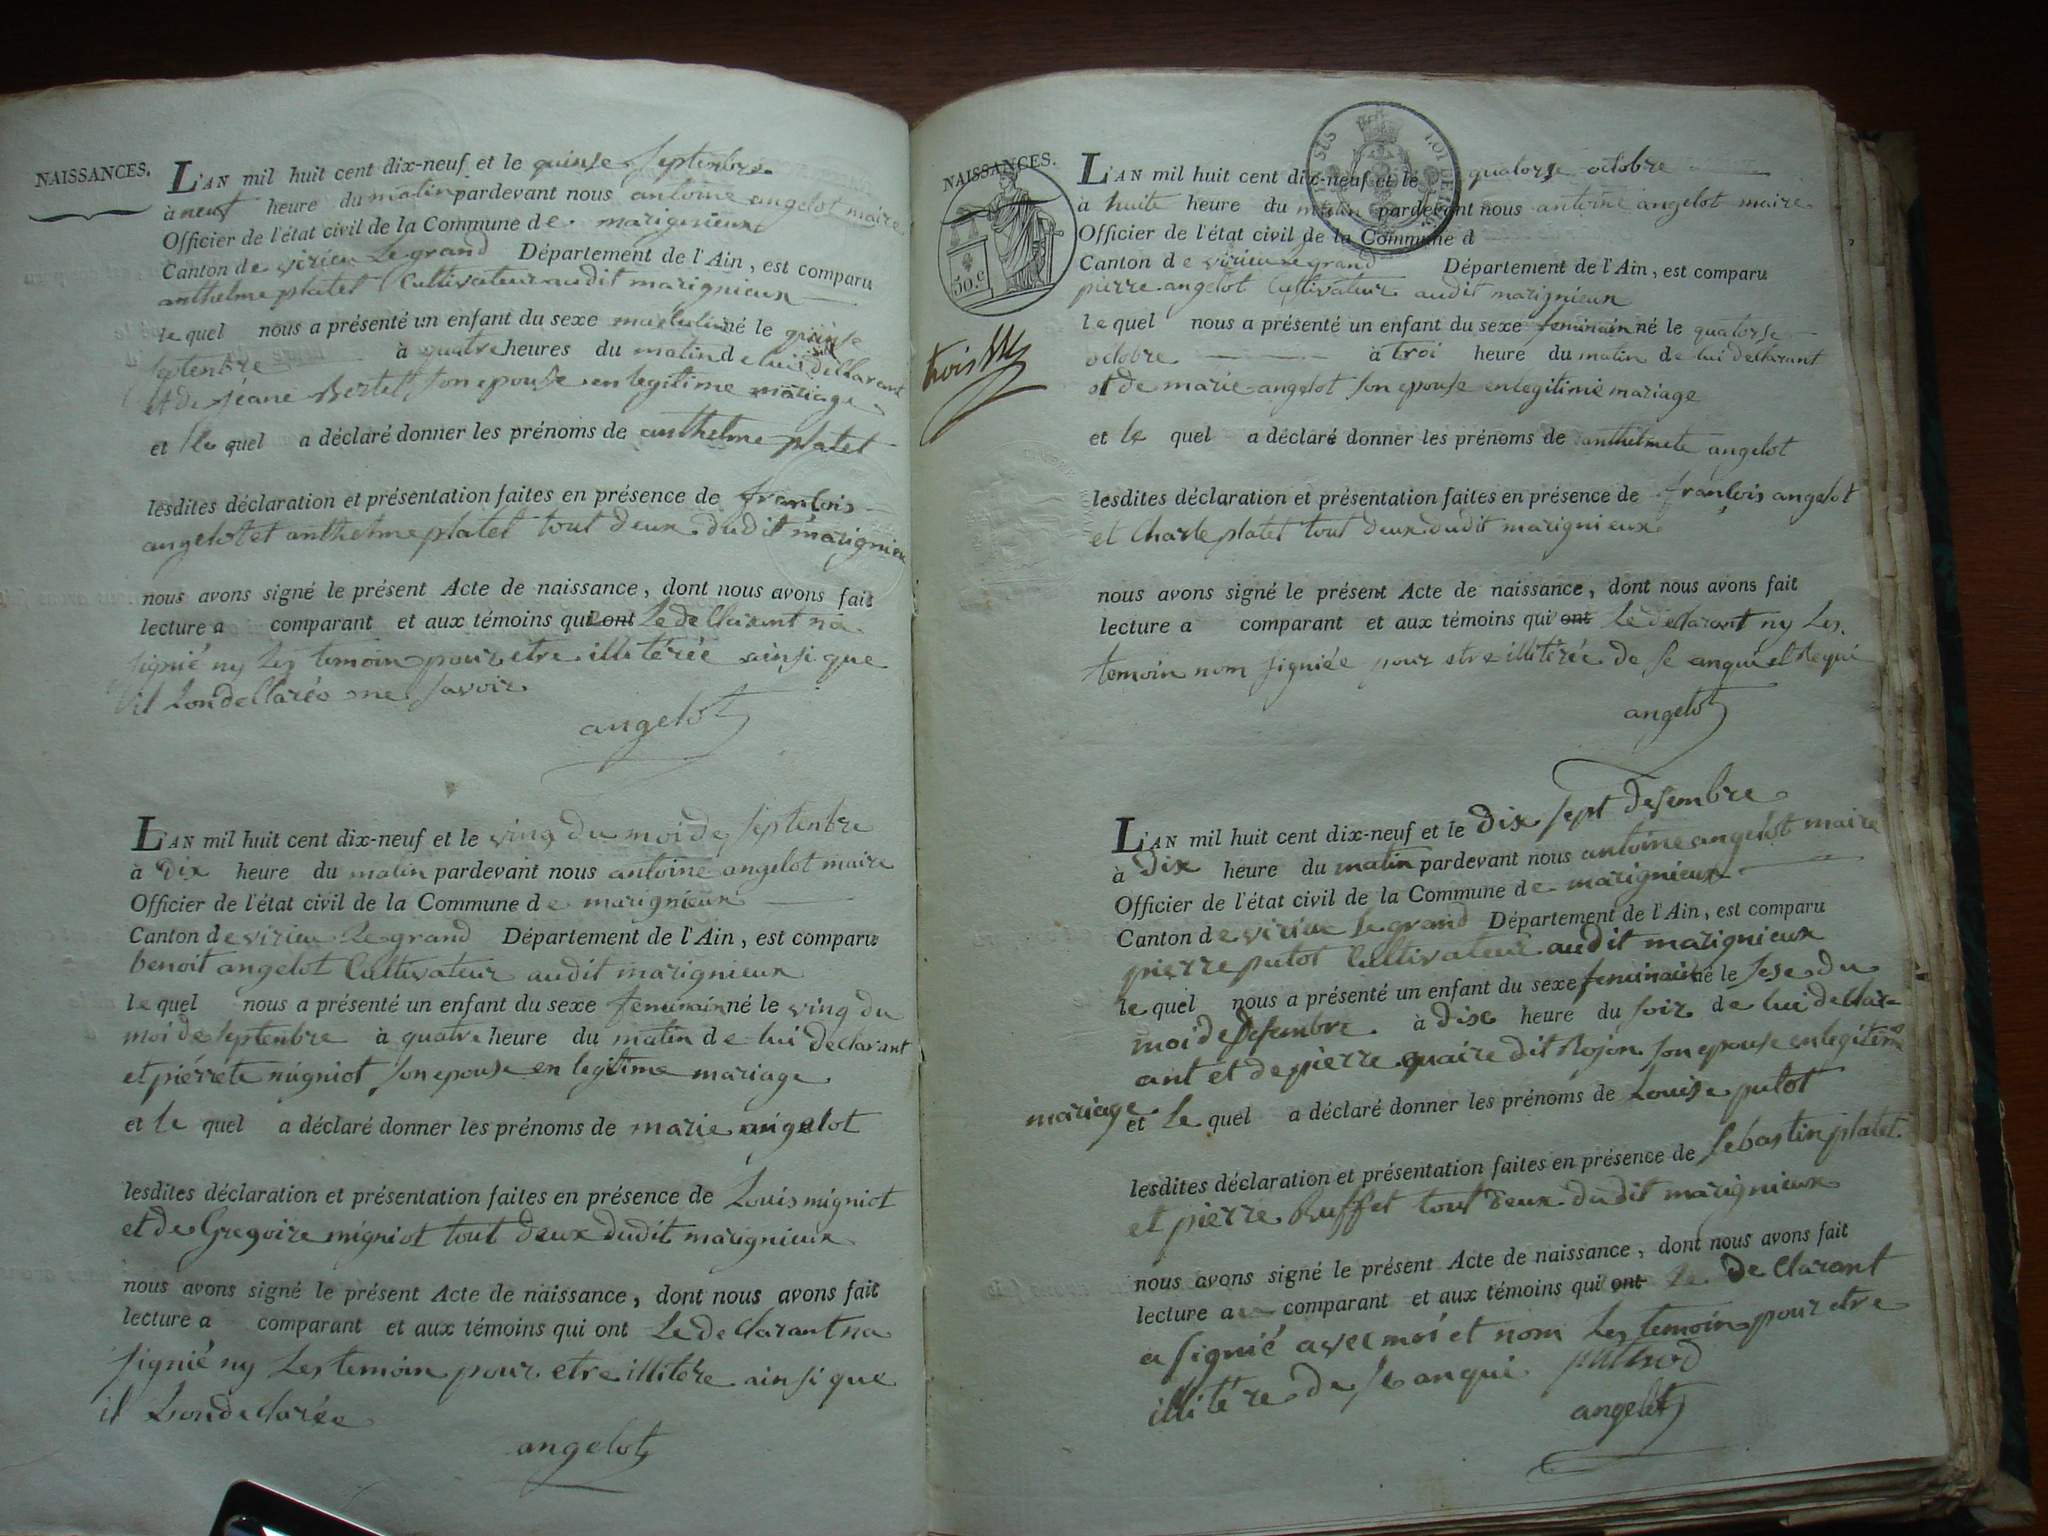 NAISSANCES.
L'AN mil huit cent dix-neuf et le quinse septembre
à neuf heure du matin pardevant nous antoine angelot maire
Officier de l'état civil de la Commune de marignieux
Canton de virieu Le grand Département de l'Ain, est comparu
anthelme platet Cultivateur audit marignieux
le quel nous a présenté un enfant du sexe né le quinse
septembre à quatre heures du matin de lui declarant
et de jéane Bertet son epouse en legitime mariage
et le quel a déclaré donner les prénoms de anthelme platet
lesdites déclaration et présentation faites en présence de francois
angelot et anthelme platet tout deux dudit marignieu
nous avons signé le présent Acte de naissance, dont nous avons fait
lecture a comparant et aux témoins qui ont Le declarant na
signié ny Les temoin pour etre illiterée ainsi que
il Lon declarée ne savoir
angelot
L'AN mil huit cent dix-neuf et le ving du moi de septenbre
à Dix heure du matin pardevant nous antoine angelot maire
Officier de l'état civil de la Commune de marignieux
Canton de virieu Le grand Département de l'Ain, est comparu
benoit angelot Cultivateur audit marignieux
le quel nous a présenté un enfant du sexe feminain né le ving du
moi de septenbre à quatre heure du matin de lui declarant
et pierrete migniot son epouse en legitime mariage
et le quel a déclaré donner les prénoms de marie angelot
lesdites déclaration et présentation faites en présence de Louis migniot
et de Gregoire migniot tout deux dudit marignieux
nous avons signé le présent Acte de naissance, dont nous avons fait
lecture a comparant et aux témoins qui ont Le declarant na
signié ny Les temoin pour etre illitere ainsi que
il Lon declarée
angelot
NAISSANCES.
50.c
L'AN mil huit cent dix-neuf et le quatorse octobre
à huite heure du matin pardevant nous antoine angelot maire
Officier de l'état civil de la Commune d
Canton de virieu Le grand Département de l'Ain, est comparu
pierre angelot Cultivateur audit marignieux
le quel nous a présenté un enfant du sexe feminain né le quatorse
octobre à troi heure du matin de lui declarant
et de marie angelot son epouse en legitime mariage
et le quel a déclaré donner les prénoms de anthelmete angelot
lesdites déclaration et présentation faites en présence de françois angelot
et Charle platet tout deux dudit marignieux
nous avons signé le présent Acte de naissance, dont nous avons fait
lecture a comparant et aux témoins qui ont Le declarant ny Les
temoin nom signiée pour etre illitirée de se anquie Requi
angelot
L'AN mil huit cent dix-neuf et le dix sept desembre
à dix heure du matin pardevant nous antoine angelot maire
Officier de l'état civil de la Commune de marignieux
Canton de virieu Le grand Département de l'Ain, est comparu
pierre putot Cultivateur audit marignieux
le quel nous a présenté un enfant du sexe feminain né le sese du
moi de desembre à disc heure du soir de lui declar
ant et de pierre quaire dit Rojon son epouse en legitime
mariage et Le quel a déclaré donner les prénoms de Louise putot
lesdites déclaration et présentation faites en présence de sebastin platet
et pierre Buffet tout deux dudit marignieux
nous avons signé le présent Acte de naissance, dont nous avons fait
lecture au comparant et aux témoins qui ont Le declarant
a signié avec moi et nom Les temoin pour etre
illitere de se anqui
angelot